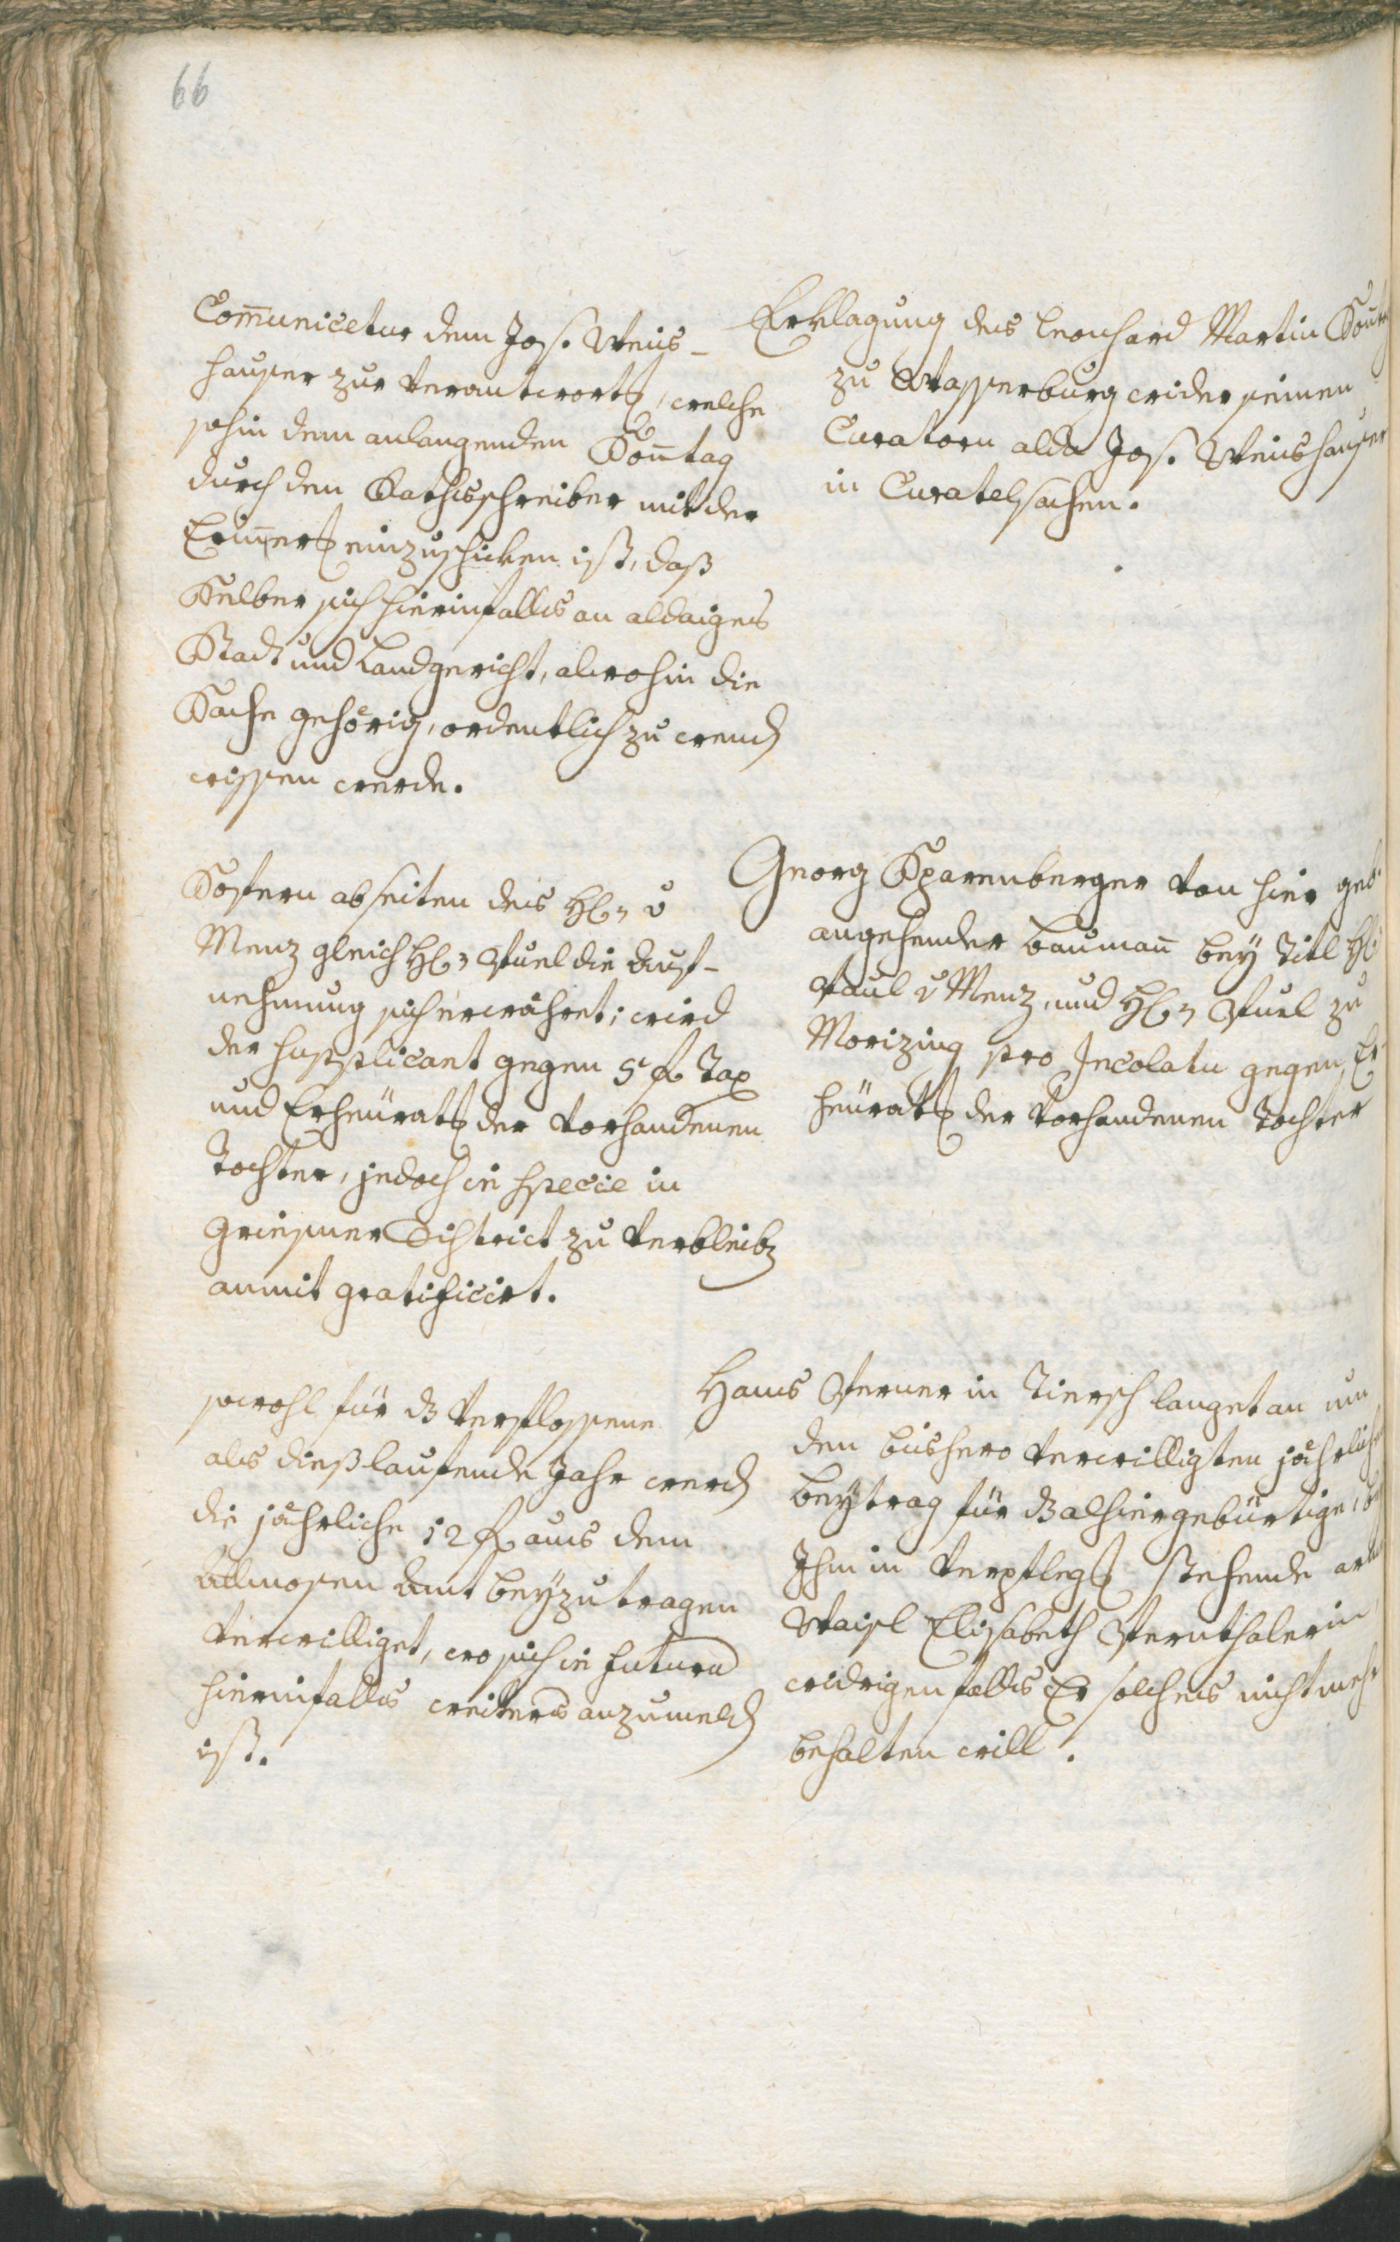 66
Com̅unicetur dem Jos. Weis-
hauser zur verantwortg, welche
sohin dem anlangenden Son̅tag
durch den Rathsschreiber mit der
Erin̅erg einzuschicken ist, daß
Selber sich hierinfalls an aldaiges
Stadt und Landgericht, alwohin die
Sache gehörig, ordentlich zu wenden
wissen werde.
Erklagung des Leonhard Martin
zu Wasserburg wider seinen
Curatorn alda Jos. Weishauser
in Curatelsachen.
Sofern abseiten des H: v
Menz gleich H: Stuel die Auf-
nehmung sich erwahret; wird
der supplicant gegen 5 f Tax
und Erheüratg der vorhandenen
Tochter, jedoch in specie in
Griesner District zu verbleiben
anmit gratificirt.
Georg Sparenberger von hier geb.
angehender Bauman̅ bey Titl H:
Paul v Menz, und H: Stuel zu
Morizing pro Incolatu gegen Er-
heüratg der vorhandenen Tochter
sowohl für d verflossene
als dießlaufende Jahr werden
die jährliche 12 f aus dem
Allmosen Amt beyzutragen
verwilliget, wo sich in futura
hierinfalls weiters anzumelden
ist.
Hans Ferner in Tiersch langet an um
den bishero verwilligten jährlichen
beytrag für d alhier gebürtige, bey
Ihm in Verpflegg stehende arme
Waisl Elisabeth Fernthalerin
widrigenfalls Er solches nicht mehr
behalten will.